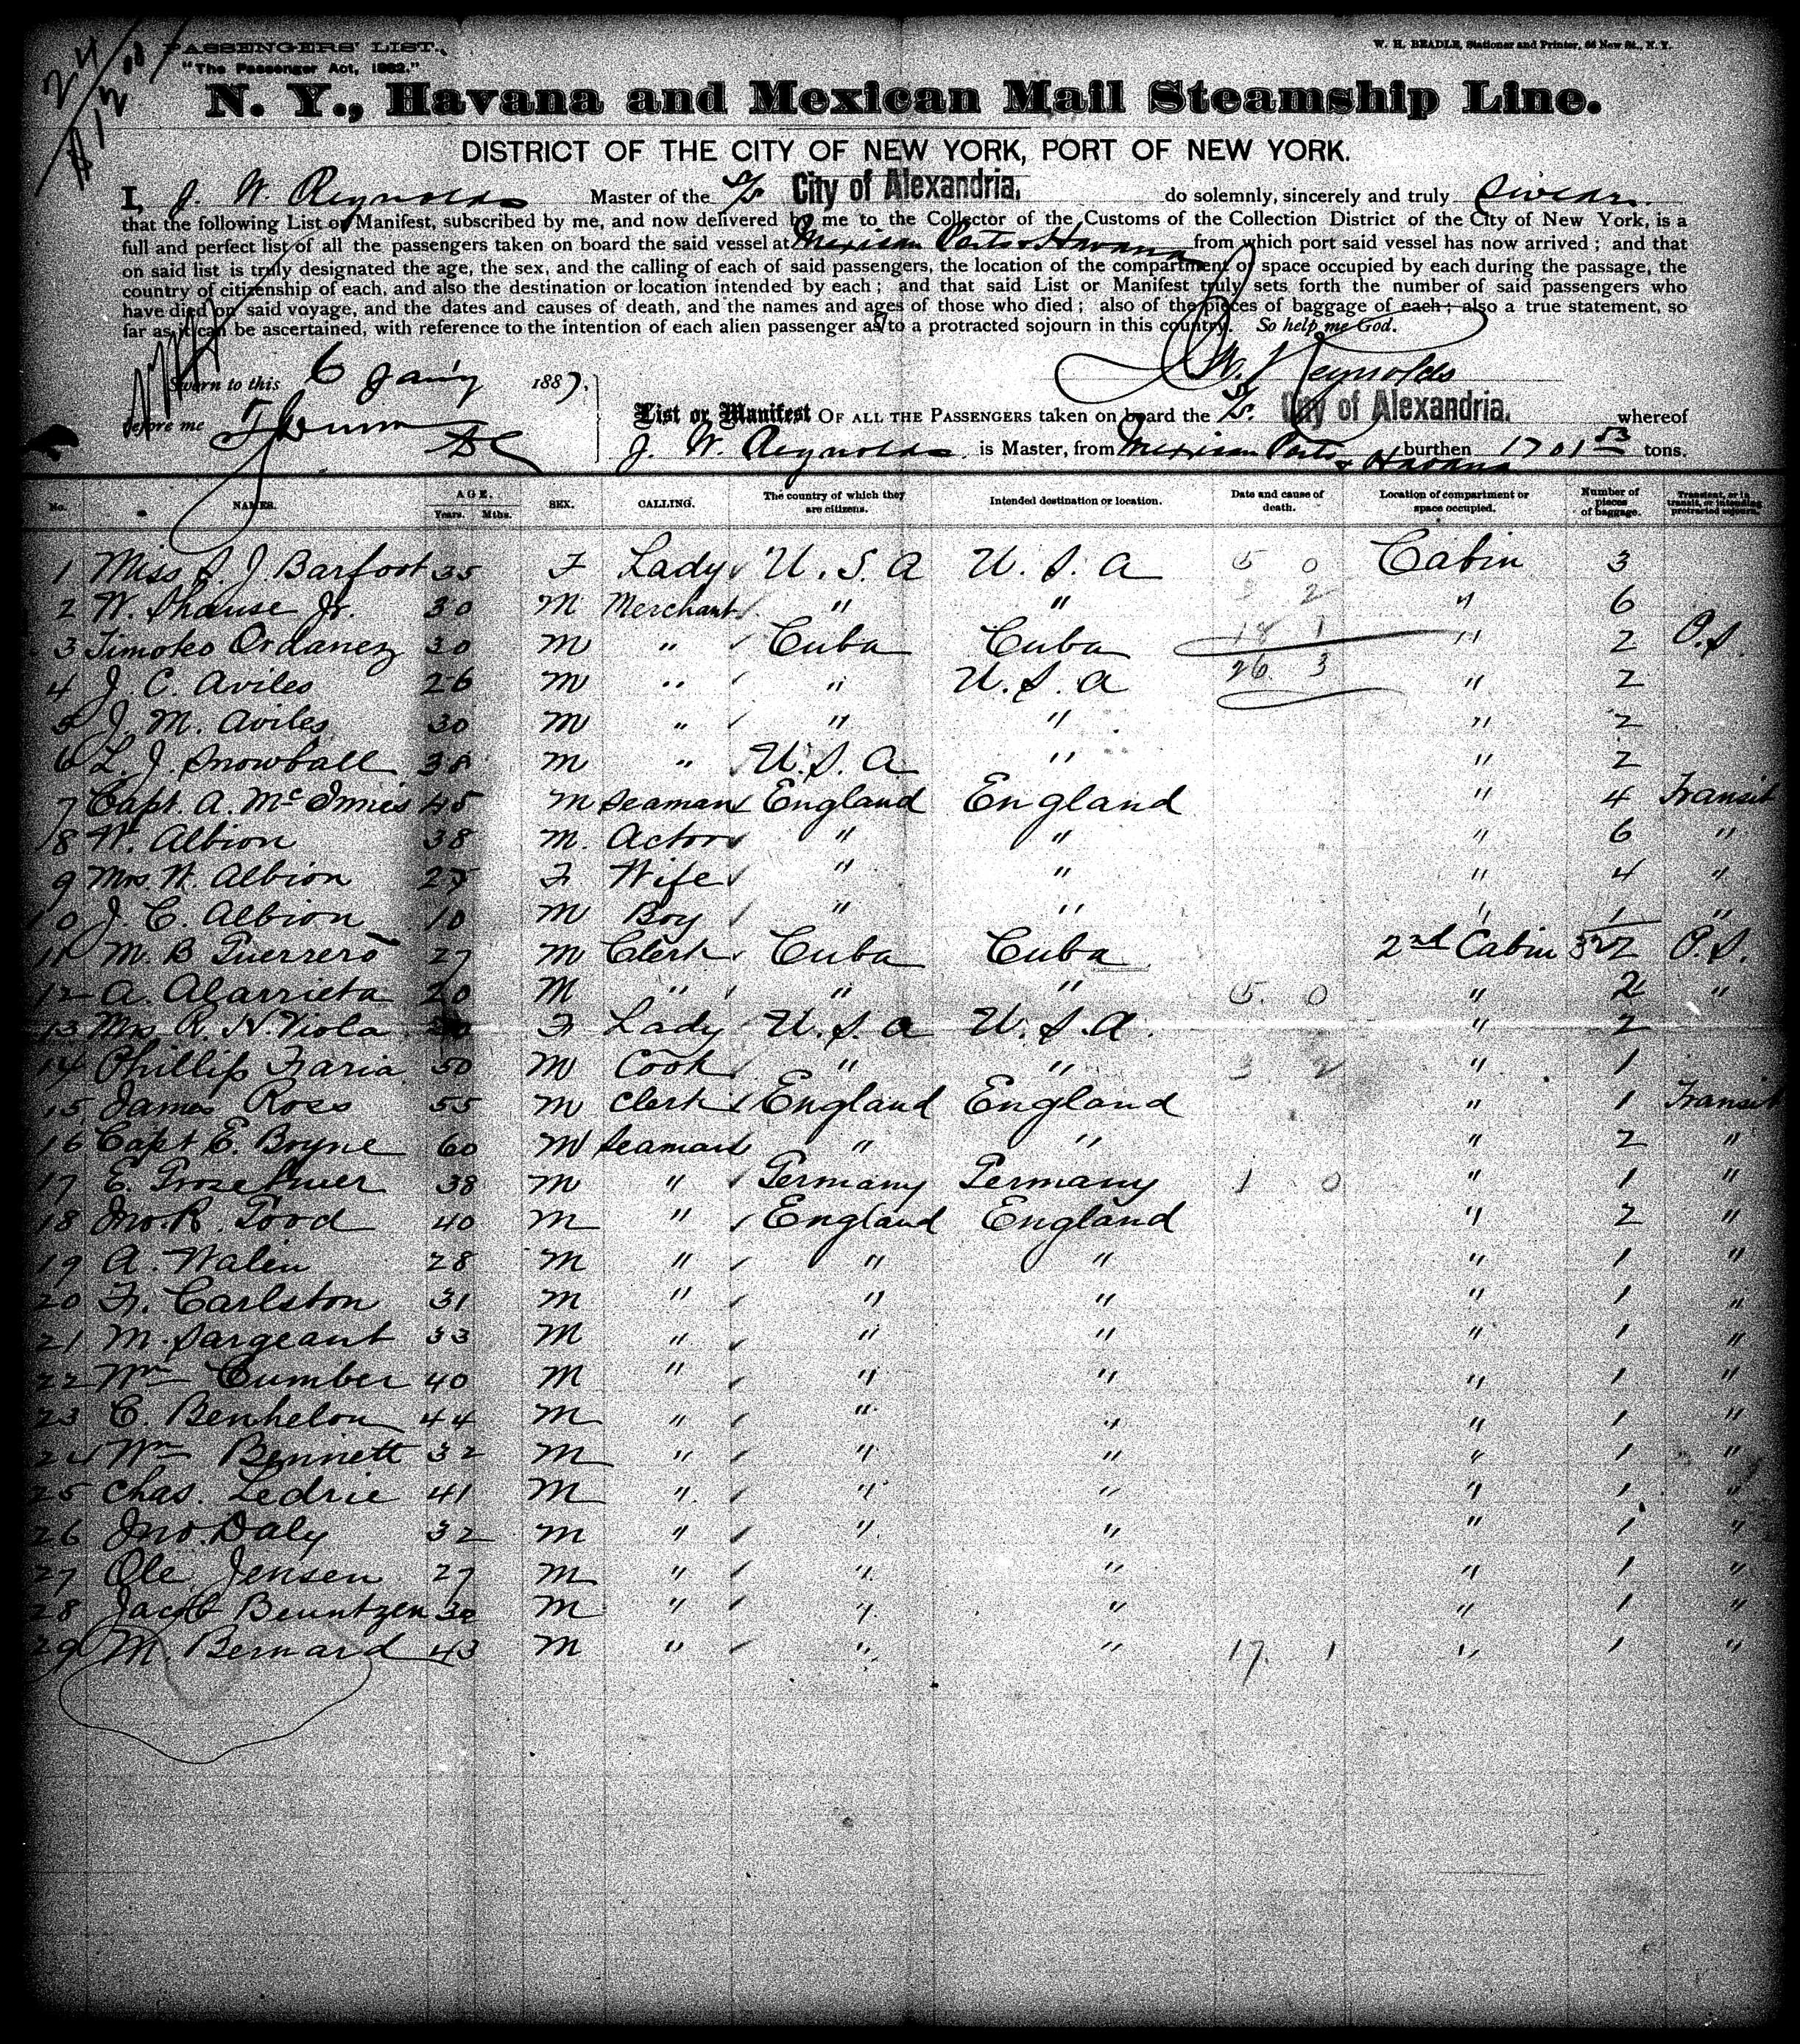 24/11
$12
PASSENGERS' LIST.
"The Passenger Act, 1882."
W. H. BEADLE, Stationer and Printer, 66 New St., N. Y.
N. Y., Havana and Mexican Mail Steamship Line.
DISTRICT OF THE CITY OF NEW YORK, PORT OF NEW YORK.
I, J. W. Reynolds Master of the S/S City of Alexandria. do solemnly, sincerely and truly swear
that the following List or Manifest, subscribed by me, and now delivered by me to the Collector of the Customs of the Collection District of the City of New York, is a
full and perfect list of all the passengers taken on board the said vessel at Mexican Ports & Havana from which port said vessel has now arrived; and that
on said list is truly designated the age, the sex, and the calling of each of said passengers, the location of the compartment or space occupied by each during the passage, the
country of citizenship of each, and also the destination or location intended by each; and that said List or Manifest truly sets forth the number of said passengers who
have died on said voyage, and the dates and causes of death, and the names and ages of those who died; also of the pieces of baggage of each; also a true statement, so
far as it can be ascertained, with reference to the intention of each alien passenger as to a protracted sojourn in this country. So help me God.
Sworn to this 6 Jan'y 1887. J. W. Reynolds
before me DC
List or Manifest OF ALL THE PASSENGERS taken on board the S/S. City of Alexandria. whereof
J. W. Reynolds is Master, from Mexican Ports & Havana burthen 1701 53 tons.
No. NAMES. AGE. Years. Mths. SEX. CALLING. The country of which they are citizens. Intended destination or location. Date and cause of death. Location of compartment or space occupied. Number of pieces of baggage. Transient, or in transit, or intending protracted sojourn.
1 Miss S. J. Barfoot 35 F Lady U.S.A U.S.A 5 0 Cabin 3
2 W. Shause Jr. 30 M Merchant " " 3 2 " 6
3 Timoteo Ordanez 30 M " Cuba Cuba 18 1 " 2 P.S.
4 J. C. Aviles 26 M " " U.S.A 26 3 " 2
5 J. M. Aviles 30 M " " " " 2
6 L. J. Snowball 38 M " U.S.A. " " 2
7 Capt. A. McInnies 45 M Seaman England England " 4 Transit
8 W. Albion 38 M. Actor " " " 6 "
9 Mrs. W. Albion 25 F Wife " " " 4 "
10 J. C. Albion 10 M Boy " " " 1 "
11 M. B Guerrero 27 M Clerk Cuba Cuba 2nd Cabin 32 2 P.S.
12 A. Alarrieta 20 M " " " 5. 0 " 2 "
13 Mrs R. N. Viola F Lady U.S.A U.S.A. " 2
14 Phillip Faria 50 M Cook " " 3 2 " 1
15 James Ross 55 M Clerk England England " 1 Transit
16 Capt E. Boyne 60 M Seaman " " " 2 "
17 E. 38 M " Germany Germany 1 0 " 1 "
18 Jno. R. Good 40 M " England England " 2 "
19 A. Walin 28 M " " " " 1 "
20 F. Carlston 31 M " " " " 1 "
21 M. Sargeant 33 M " " " " 1 "
22 Wm Cumber 40 M " " " " 1 "
23 C. Benhelon 44 M " " " " 1 "
24 Wm Bennett 32 M " " " " 1 "
25 Chas. Ledrie 41 M " " " " 1 "
26 Jno. Daly 32 M " " " " 1 "
27 Ole Jensen 27 M " " " " 1 "
28 Jacob Beuntzen 30 M " " " " 1 "
29 M. Bernard 43 M " " " 17. 1 " 1 "